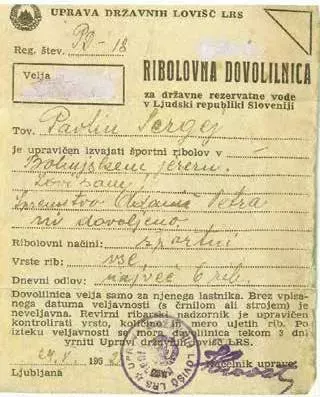 UPRAVA DRŽAVNIH LOVIŠČ LRS
Reg. štev. PR-18
Velja
RIBOLOVNA DOVOLILNICA
za državne rezervatne vode
v Ljudski republiki Sloveniji
Tov. Pavlin Sergej
je upravičen izvajati športni ribolov v
Bohinjskem jezeru.
Lovi sam,
Spremstvo Petra
ni dovoljeno.
Ribolovni načini: športni
Vrste rib: vse
Dnevni odlov: največ 6 rib
Dovolilnica velja samo za njenega lastnika. Brez vpisa-
nega datuma veljavnosti (s črnilom ali strojem) je
neveljavna. Revirni ribarski nadzornik je upravičen
kontrolirati vrsto, količino in mero ujetih rib. Po
izteku veljavnosti se mora dovolilnica tekom 3 dni
vrniti Upravi državnih lovišč LRS.
195
Ljubljana